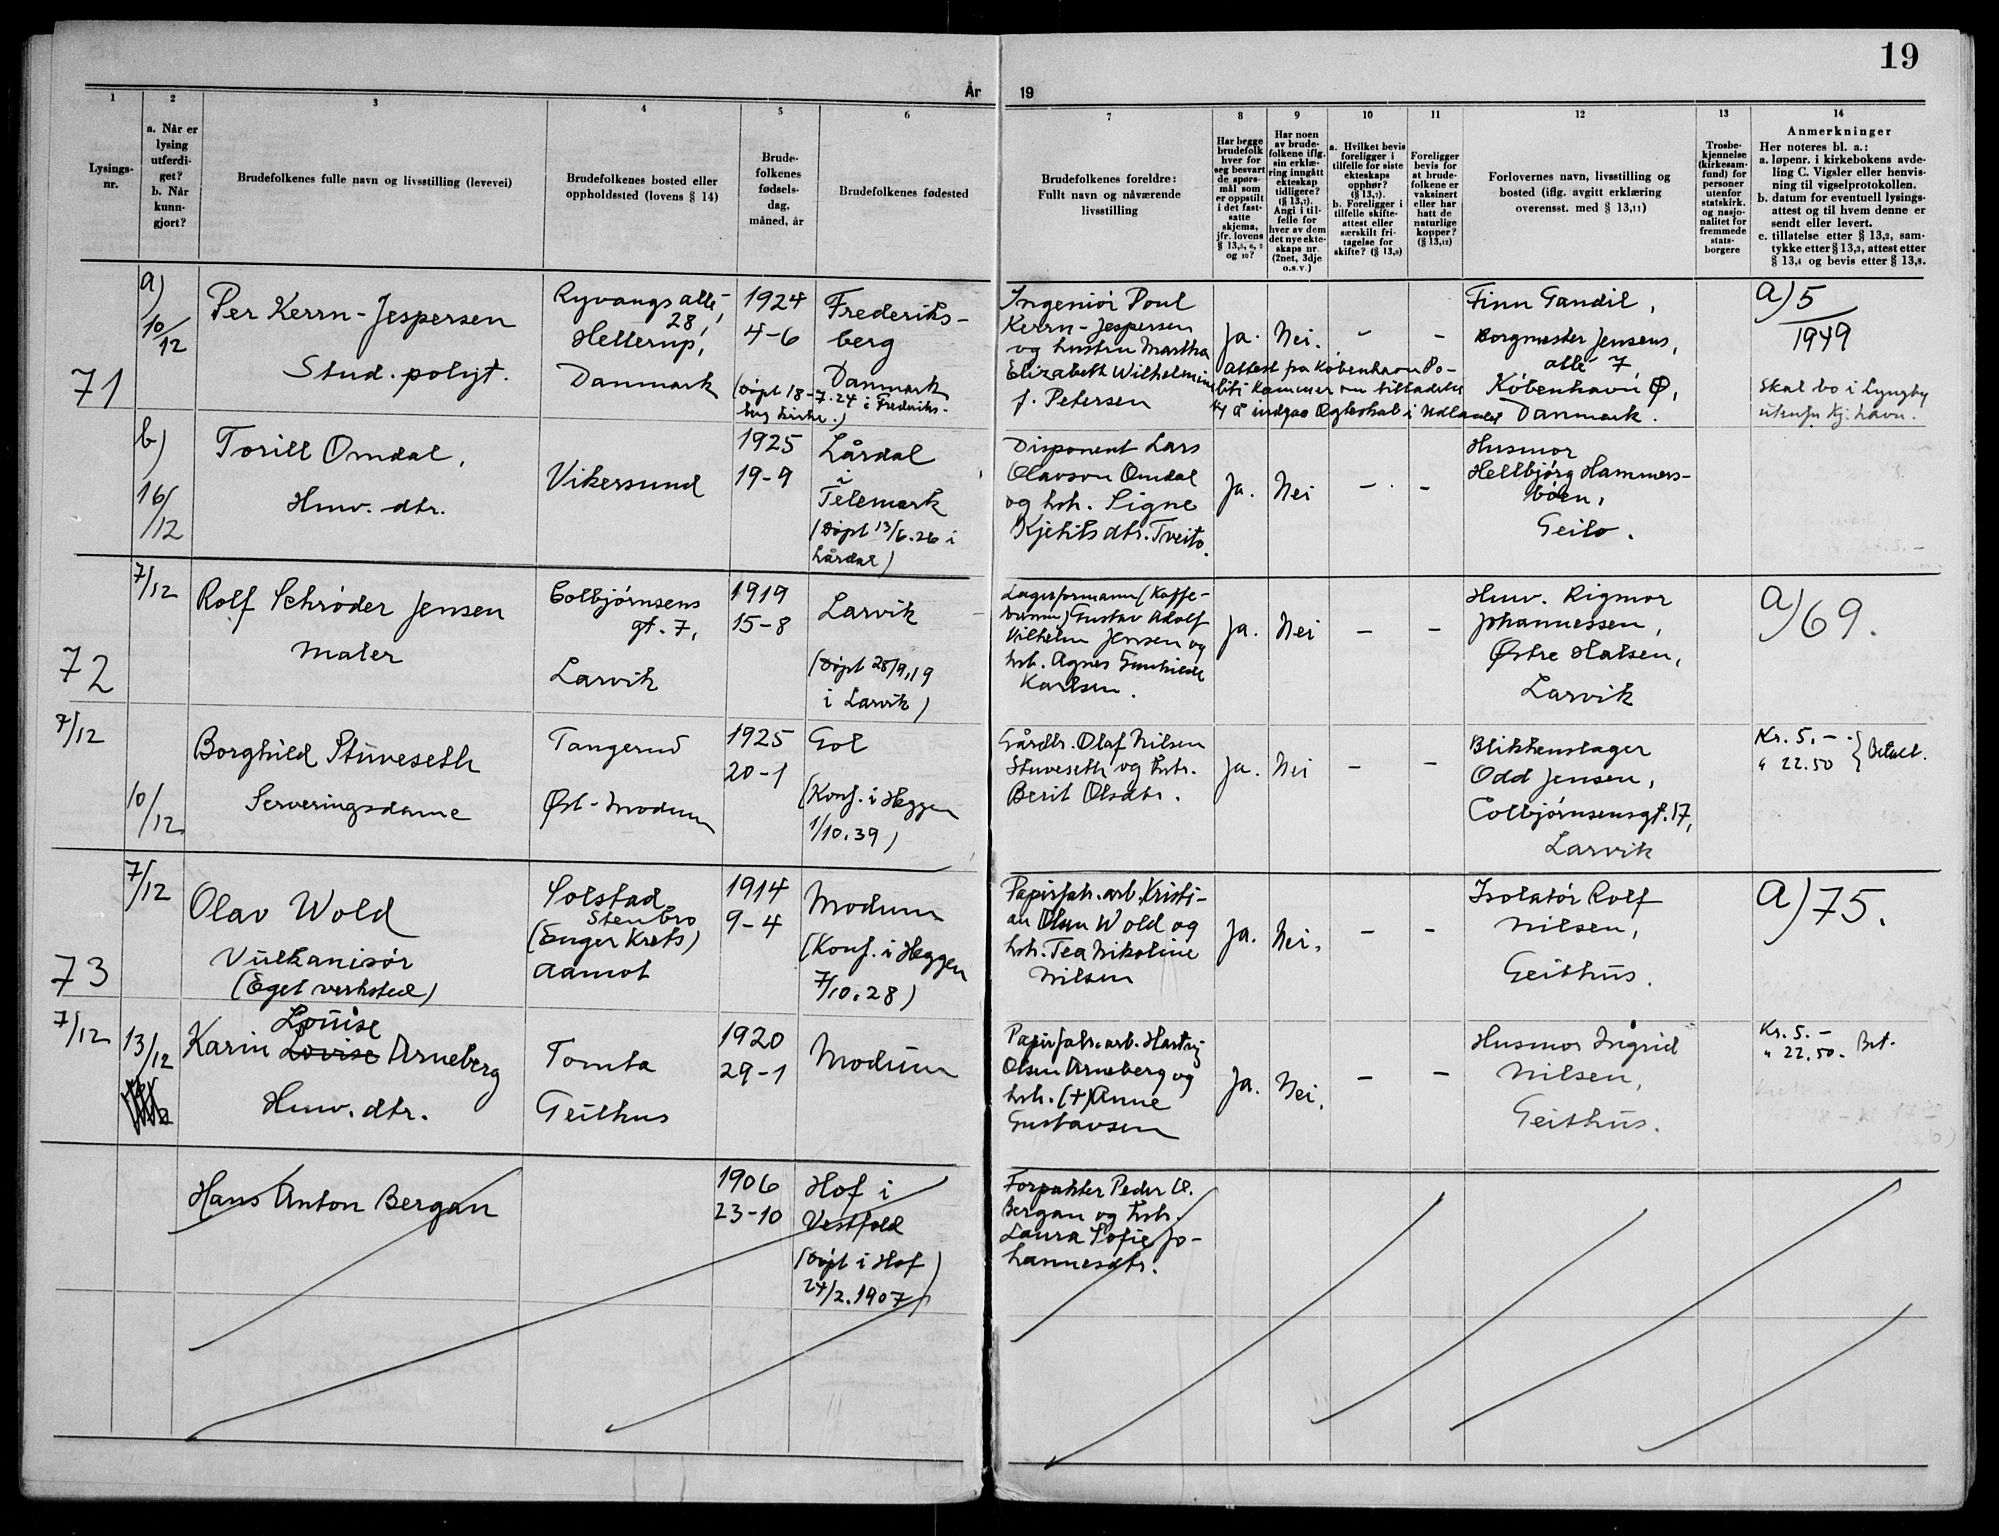 19
År
19
1
2
3
4
5
6
7
8
9
10
11
12
13
14
Lysings-
nr.
a. Når er
lysing
utferdi-
get?
b. Når
kunn-
gjort?
Brudefolkenes fulle navn og livsstilling (levevei)
Brudefolkenes bosted eller
oppholdssted (lovens § 14)
Brude-
folkenes
fødsels-
dag,
måned, år
Brudefolkenes fødested
Brudefolkenes foreldre:
Fullt navn og nåværende
livsstilling
Har begge
brudefolk
hver for
seg besvart
de spørs-
mål som
er oppstilt
i det fast-
satte
skjema,
jfr. lovens
§ 13,5, 6, 7
og 10?
Har noen
av brude-
folkene iflg.
sin erklæ-
ring inngått
ekteskap
tidligere?
(§ 13,7).
Angi i til-
felle for
hver av dem
det nye ekte-
skaps nr.
(2net, 3dje
o.s.v.)
a. Hvilket bevis
foreligger i
tilfelle for siste
ekteskaps
opphør?
(§ 13,7).
b. Foreligger i
tilfelle skifte-
attest eller
særskilt fri-
tagelse for
skifte? (§ 13,9)
Foreligger
bevis for
at brude-
folkene er
vaksinert
eller har
hatt de
naturlige
kopper?
(§ 13,12)
Forlovernes navn, livsstilling og
bosted (iflg. avgitt erklæring
overensst. med § 13,11)
Trosbe-
kjennelse
(kirkesam-
fund) for
personer
utenfor
statskirk.
og nasjo-
nalitet for
fremmede
stats-
borgere
Anmerkninger
Her noteres bl. a.:
a. løpenr. i kirkebokens avde-
ling C. Vigsler eller henvis-
ning til vigselprotokollen.
b. datum for eventuell lysings-
attest og til hvem denne er
sendt eller levert.
c. tillatelse etter § 13,2, sam-
tykke etter § 13,3, attest etter
§ 13,4 og bevis etter § 13,8.
71
a)
10/12
Per Kerrn-Jespersen
Stud. polyt.
Ryvangs allé,
28,
Hellerup,
Danmark
1924
4-6
Frederiks-
berg
Danmark
(Døpt 18-7.24 i Frederiks-
berg kirke.)
Ingeniør Poul
Kerrn-Jespersen
og hustru Martha
Elizabeth Wilhelmine
f. Petersen
Ja. Nei. - -
Attest fra København Po-
liti Kammer om tilladelse
til å indgaa Ægteskab i Udlandet
Finn Gandil,
Borgmester Jensens,
allé 7
København Ø,
Danmark.
a) 5
1949
Skal bo i Lyngby
utenfor Kj.havn.
b)
16/12
Torill Omdal,
Husv. dtr.
Vikersund
1925
19-9
Lårdal
i
Telemark
(Døpt 13/6.26 i
Lårdal)
Disponent Lars
Olavson Omdal
og hstr. Signe
Kjetilsdtr. Tveito.
Ja. Nei - -
Husmor
Hellbjørg Hammers-
bøen,
Geilo.
72
7/12
Rolf Schrøder Jensen
Maler
Colbjørnsens
gt. 7,
Larvik
1919
15-8
Larvik
(Døpt 28/9.19
i Larvik)
Lagerformann (Kaffe-
Gustav Adolf
Vilhelm Jensen og
hstr. Agnes Gunhilde
Karlsen.
Ja. Nei - -
Husv. Rigmor
Johannessen,
Østre Halsen,
Larvik
a) 69.
7/12
10/12
Borghild Stuveseth
Serveringsdame
Tangerud
Øst-Modum
1925
20-1
Gol
(Konf. i Heggen
1/10.39)
Gårdbr. Olaf Nilsen
Stuveseth og hstr.
Berit Olsdtr.
Ja. Nei - -
Blikkenslager
Odd Jensen,
Colbjørnsensgt. 17,
Larvik
Kr. 5.-
" 22.50 } Betalt.
73
7/12
Olav Wold
Vulkanisør
(Eget verksted)
Solstad
Stenbro
(Enger Krets)
Aamot
1914
9-4
Modum
(Konf. i Heggen
7/10.28)
Papirfabr.arb. Kristi-
an Olsen Wold og
hstr. Tea Nikoline
Nilsen
Ja. Nei. - -
Isolatør Rolf
Nilsen,
Geithus.
a) 75.
7/12
13/12
Louise
Karin Lovise Arneberg
Husv. dtr.
Tomta
Geithus
1920
29-1
Modum
Papirfabr.arb. Hartvig
Olsen Arneberg og
hstr. (+) Anne
Gustavsen
Ja. Nei. - -
Husmor Ingrid
Nilsen,
Geithus.
Kr. 5.-
" 22.50. Bet.
Hans Anton Bergan
1906
23-10
Hof i
Vestfold
(Døpt i Hof)
24/2.1907)
Forpakter Peder O.
Bergan og hstr.
Laura Sofie Jo-
hannesdtr.